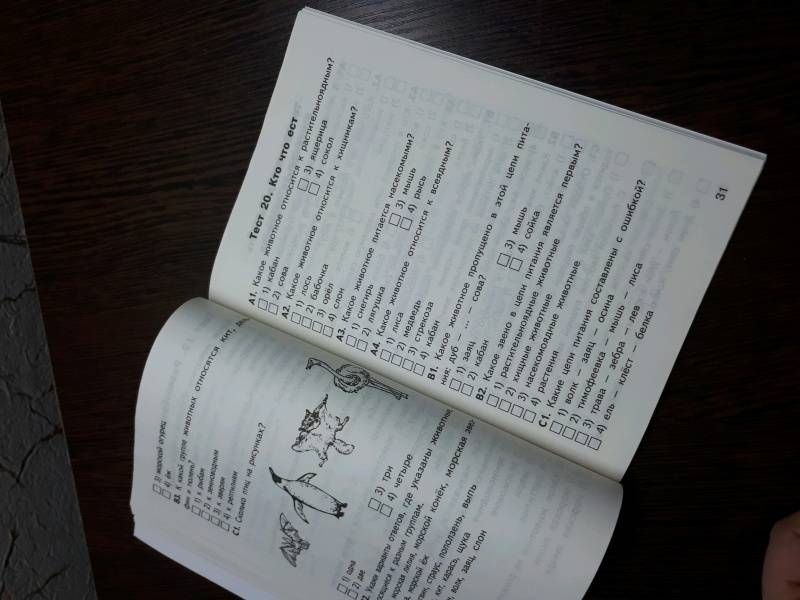 3) морской огурец
4) ёж
В3. К какой группе животных относятся кит,
фин и тюлень?
1) к рыбам
2) к земноводным
3) к зверям
4) к рептилиям
С1. Сколько птиц на рисунках?
1) одна 3) три
2) две 4) четыре
2. Укажи варианты ответов, где указаны животные
к разным группам.
морская лилия, морской конёк, морская
морской ёж
страус, поползень, выпь
кит, карась, щука
волк, заяц, слон
Тест 20. Кто что ест
А1. Какое животное относится к растительноядным?
1) кабан 3) ящерица
2) сова 4) сокол
А2. Какое животное относится к хищникам?
1) лось
2) бабочка
3) орёл
4) слон
А3. Какое животное питается насекомыми?
1) снегирь 3) мышь
2) лягушка 4) рысь
А4. Какое животное относится к всеядным?
1) лиса
2) медведь
3) стрекоза
4) кабан
В1. Какое животное пропущено в этой цепи пита-
ния: дуб – ... – сова?
1) заяц 3) мышь
2) кабан 4) сойка
В2. Какое звено в цепи питания является первым?
1) растительноядные животные
2) хищные животные
3) насекомоядные животные
4) растения
С1. Какие цепи питания составлены с ошибкой?
1) волк – заяц – осина
2) тимофеевка – мышь – лиса
3) трава – зебра – лев
4) ель – клёст – белка
31